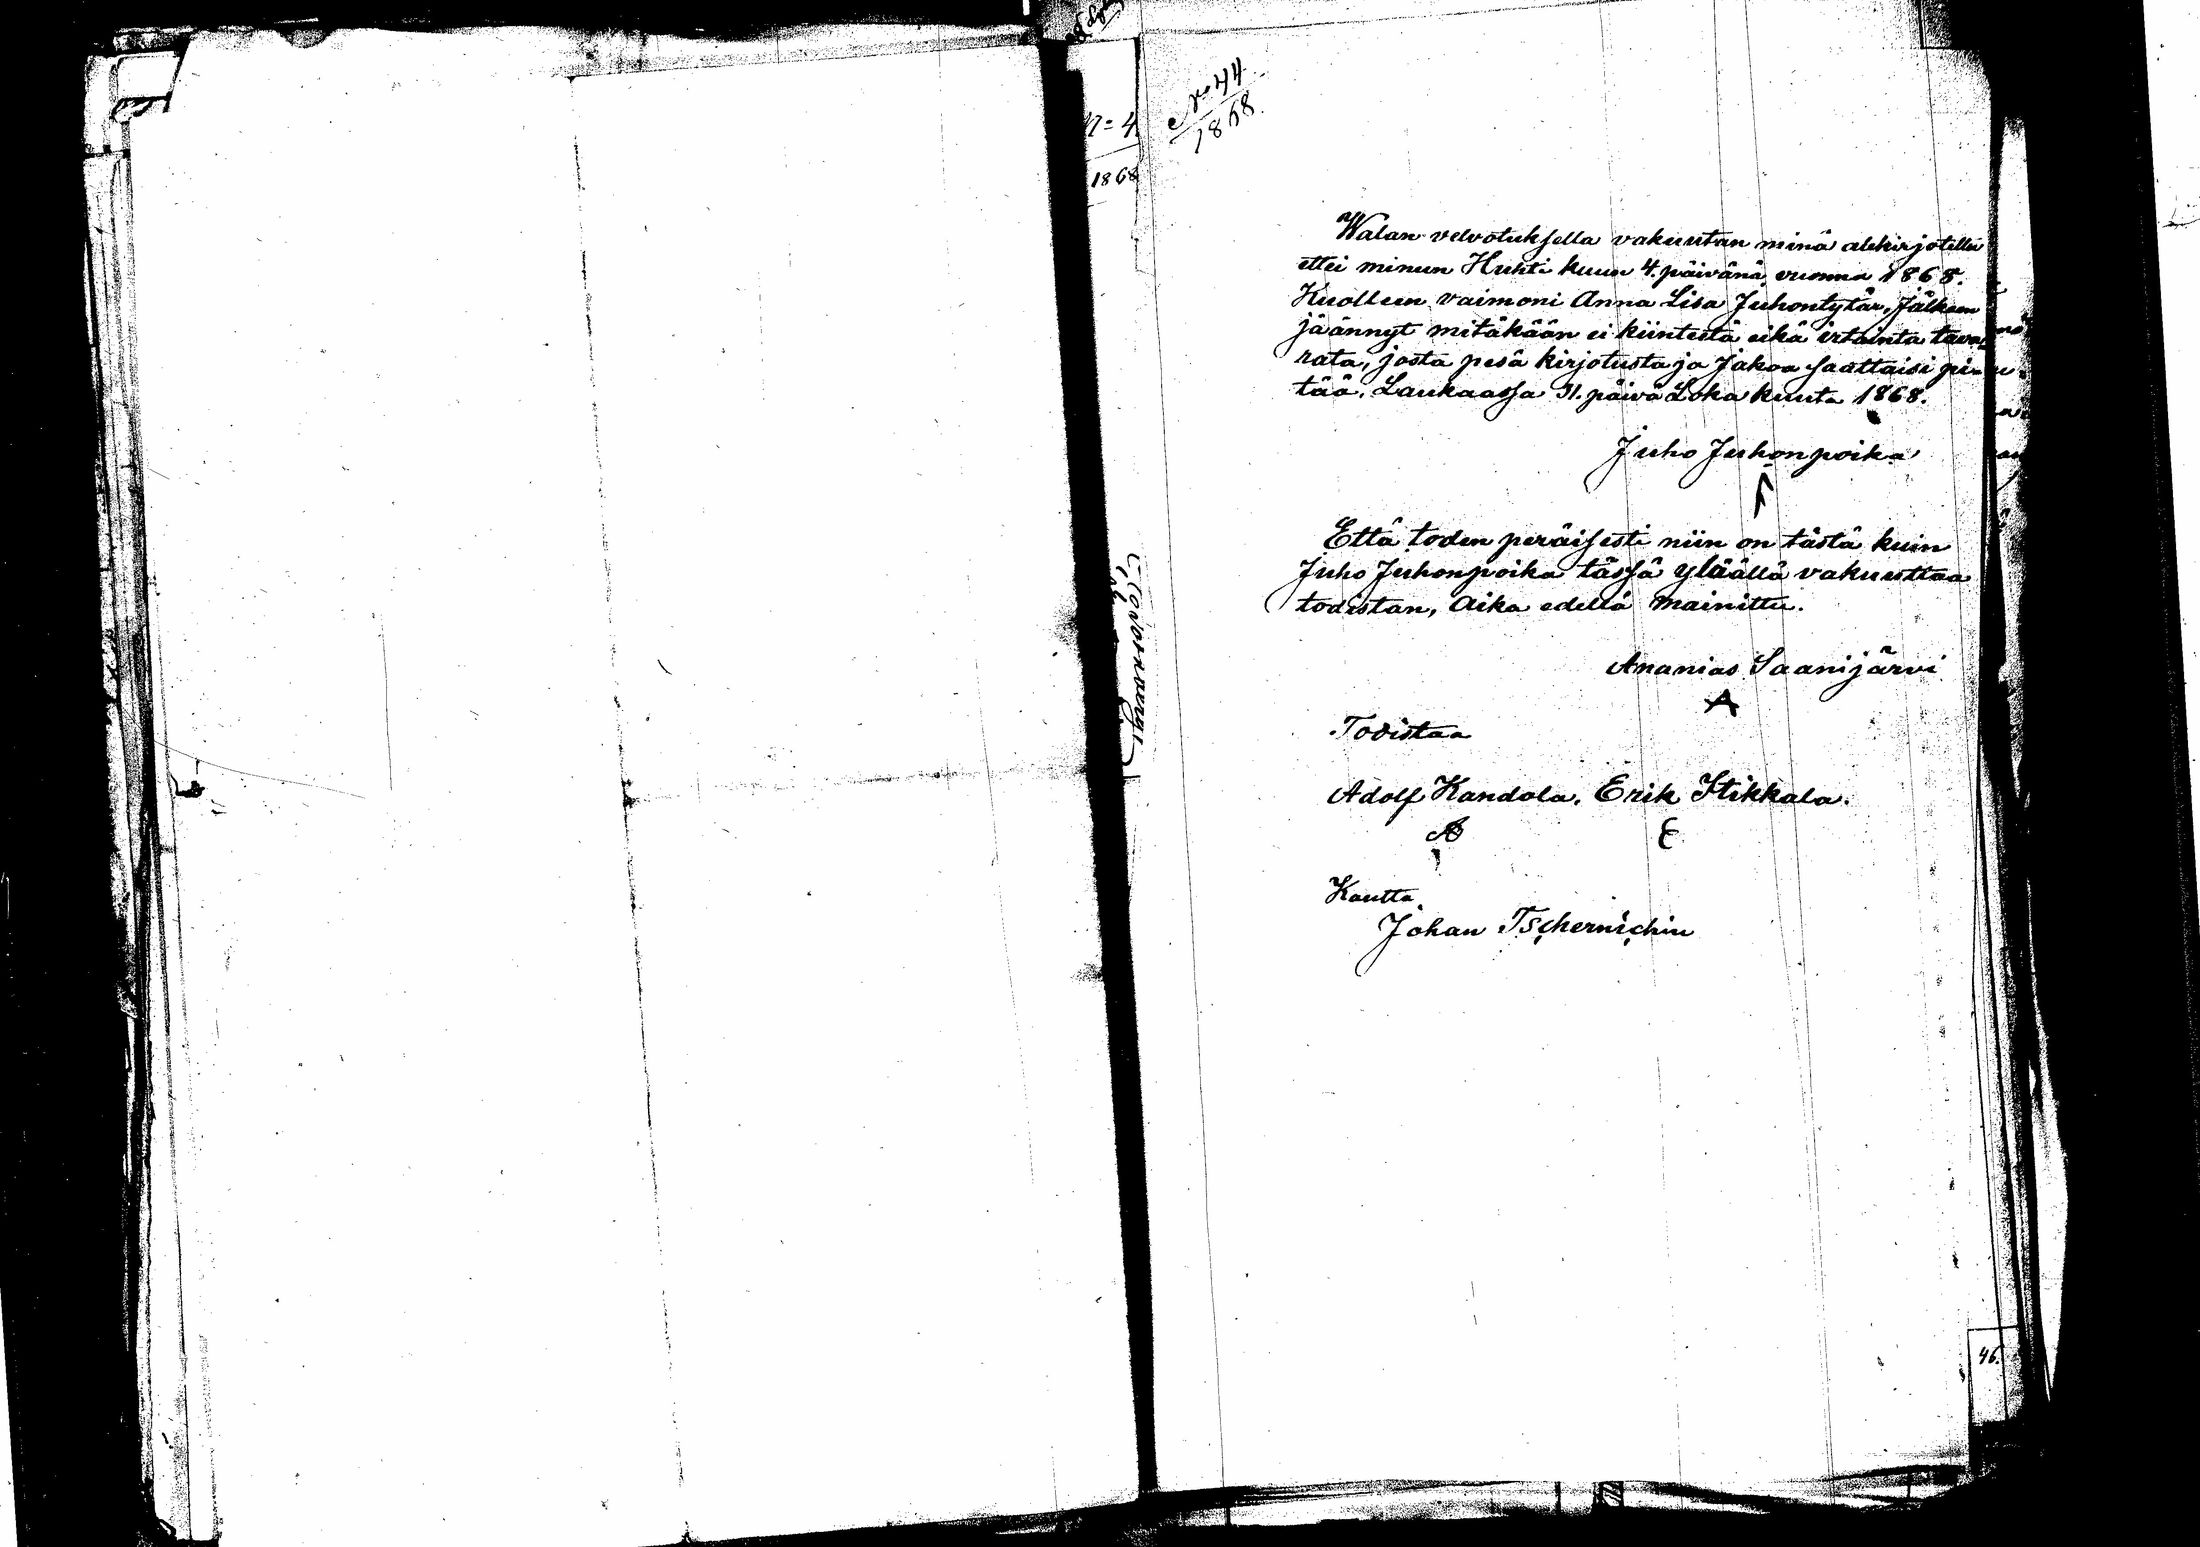 No 44
1868.
N= 4
1868
Walan velvotuksella vakuutan minä allekirjotettu
ettei minun Huhti kuun 4. päivänä vuonna 1868.
Kuolleen vaimoni Anna Lisa Juhontytär, Jälkeen
jäännyt mitäkään ei kiintestä eikä irtainta tava
rata, josta pesä kirjotusta ja Jakoa saattaisi pi-
tää. Laukaassa 31. päivä Loka kuuta 1868.
Juho Juhonpoika
Että toden peräisesti niin on tästä kuin
Juho Juhonpoika tässä yläällä vakuuttaa
todistan, Aika edellä mainittu.
Ananias Saanijärvi
A
Todistaa
Adolf Kandola. Erik Stikkala.
A E
Kautta
Johan Tschernichin
46.